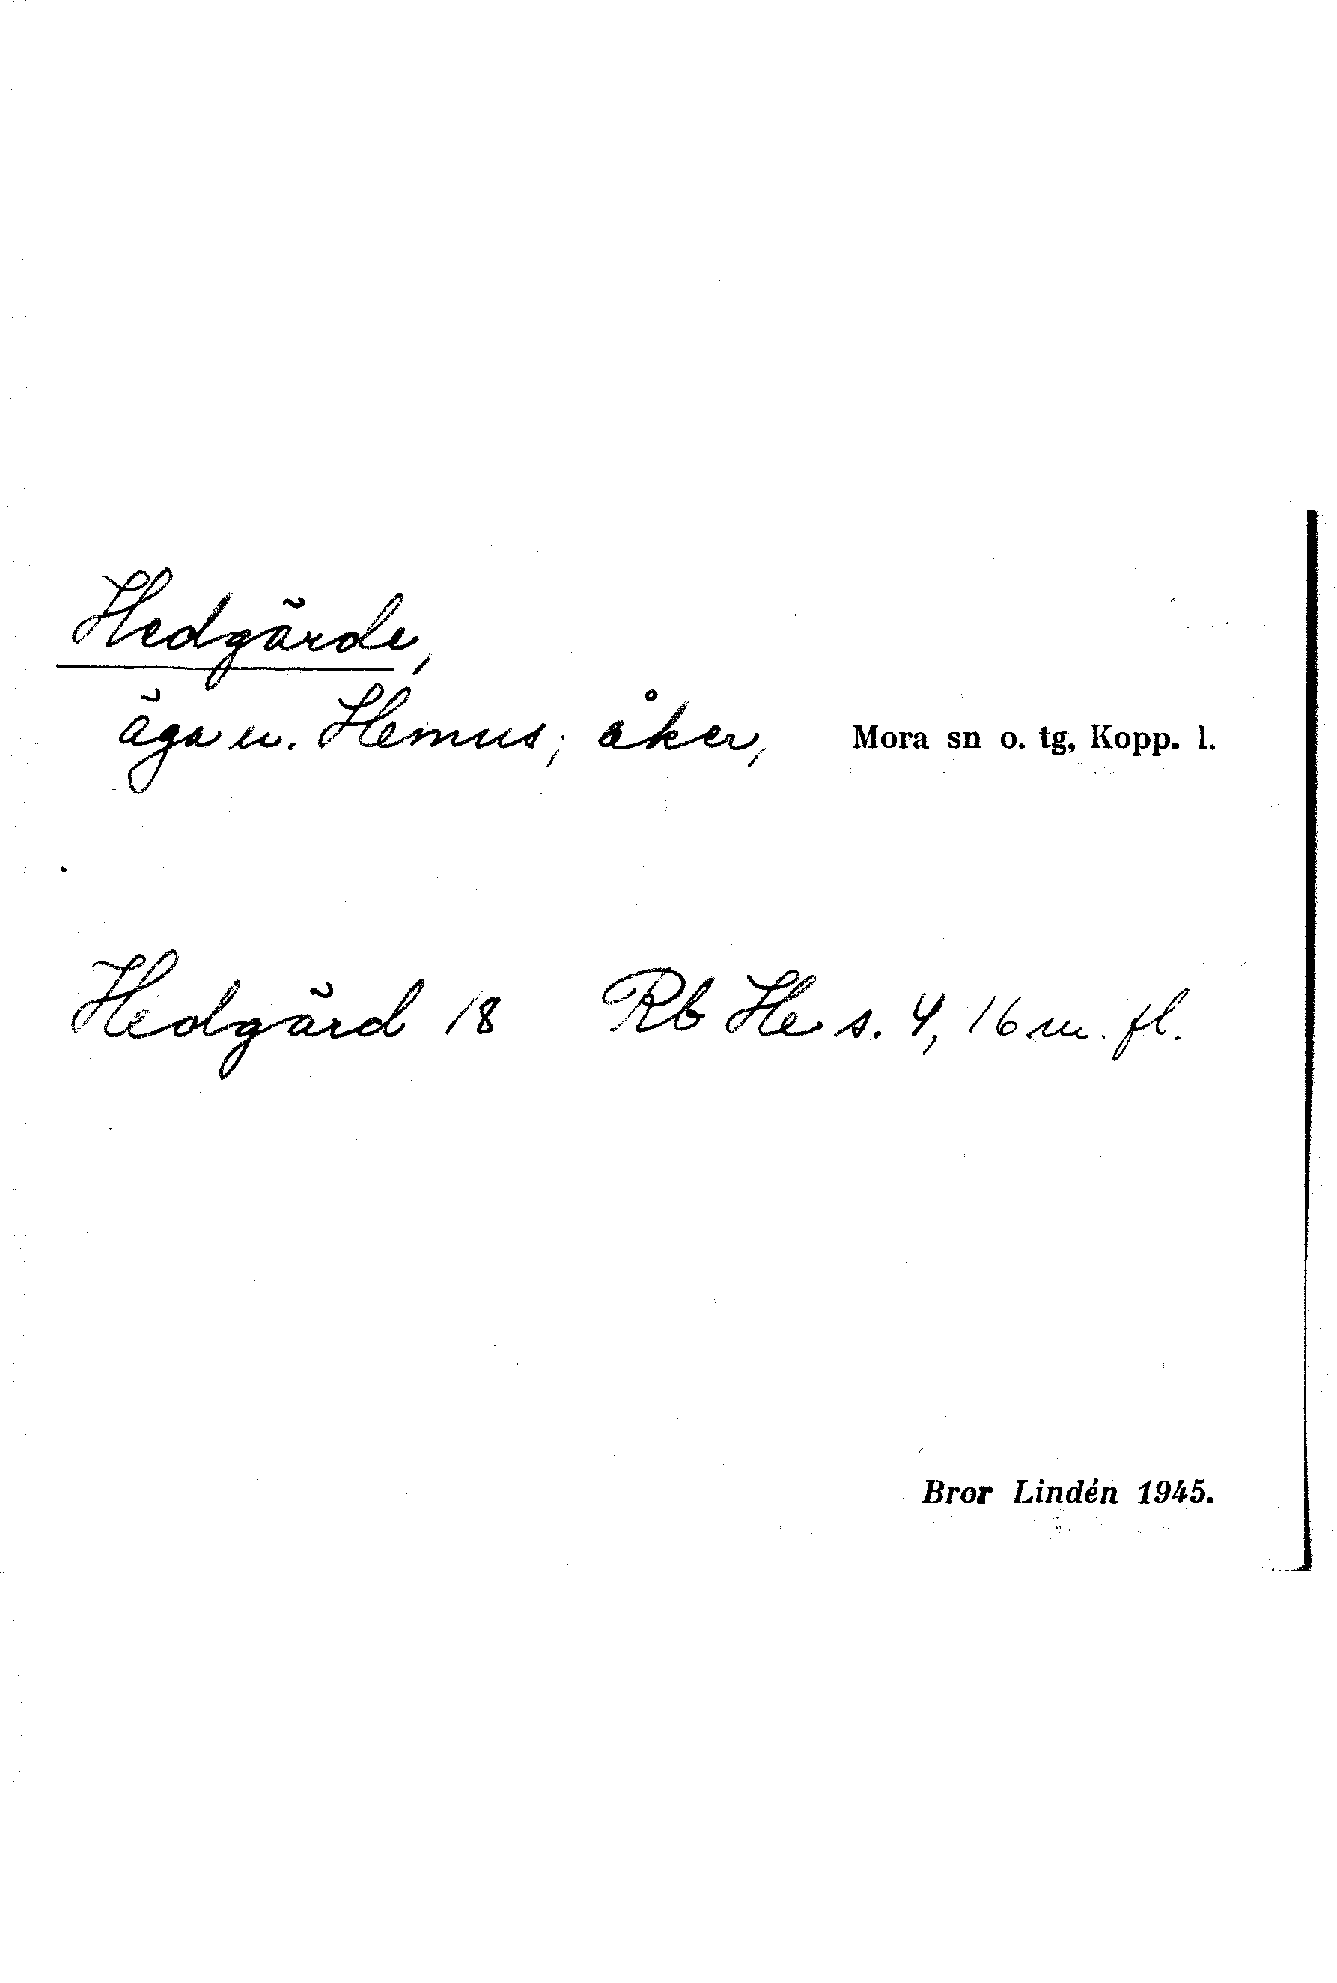 Hedgärde,
äga u. Hemus, åker, Mora sn o. tg, Kopp. l.
Hedgärd 18 Rb He s. 4, 16 m. fl.
Bror Lindén 1945.